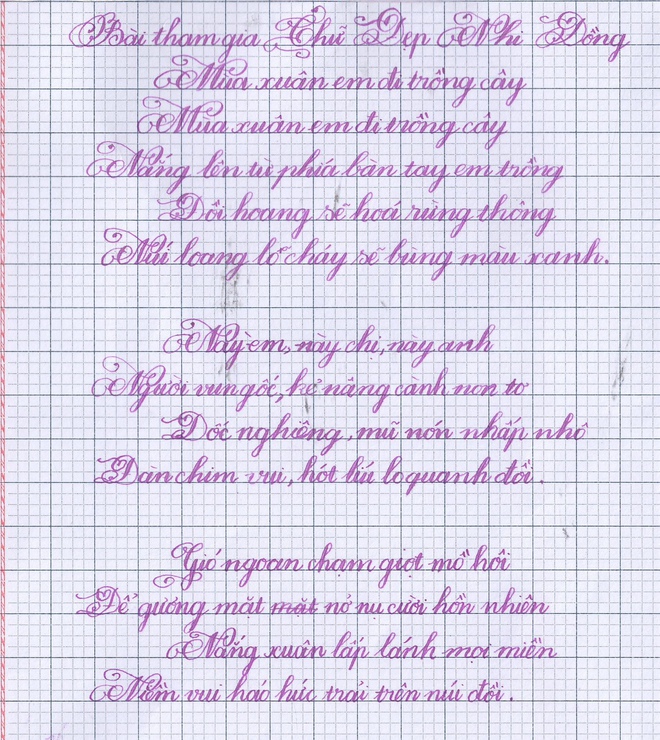 Bài tham gia Chữ Đẹp Nhi Đồng
Mùa xuân em đi trồng cây
Mùa xuân em đi trồng cây
Nắng lên từ phía bàn tay em trồng
Đồi hoang sẽ hoá rừng thông
Núi loang lổ cháy sẽ bừng màu xanh.
Này em, này chị, này anh
Người vun gốc, kẻ nâng cành non tơ
Dốc nghiêng, mũ nón nhấp nhô
Đàn chim vui, hót líu lo quanh đồi.
Gió ngoan chạm giọt mồ hôi
Để gương mặt mặt nở nụ cười hồn nhiên
Nắng xuân lấp lánh mọi miền
Niềm vui háo hức trải trên núi đồi.